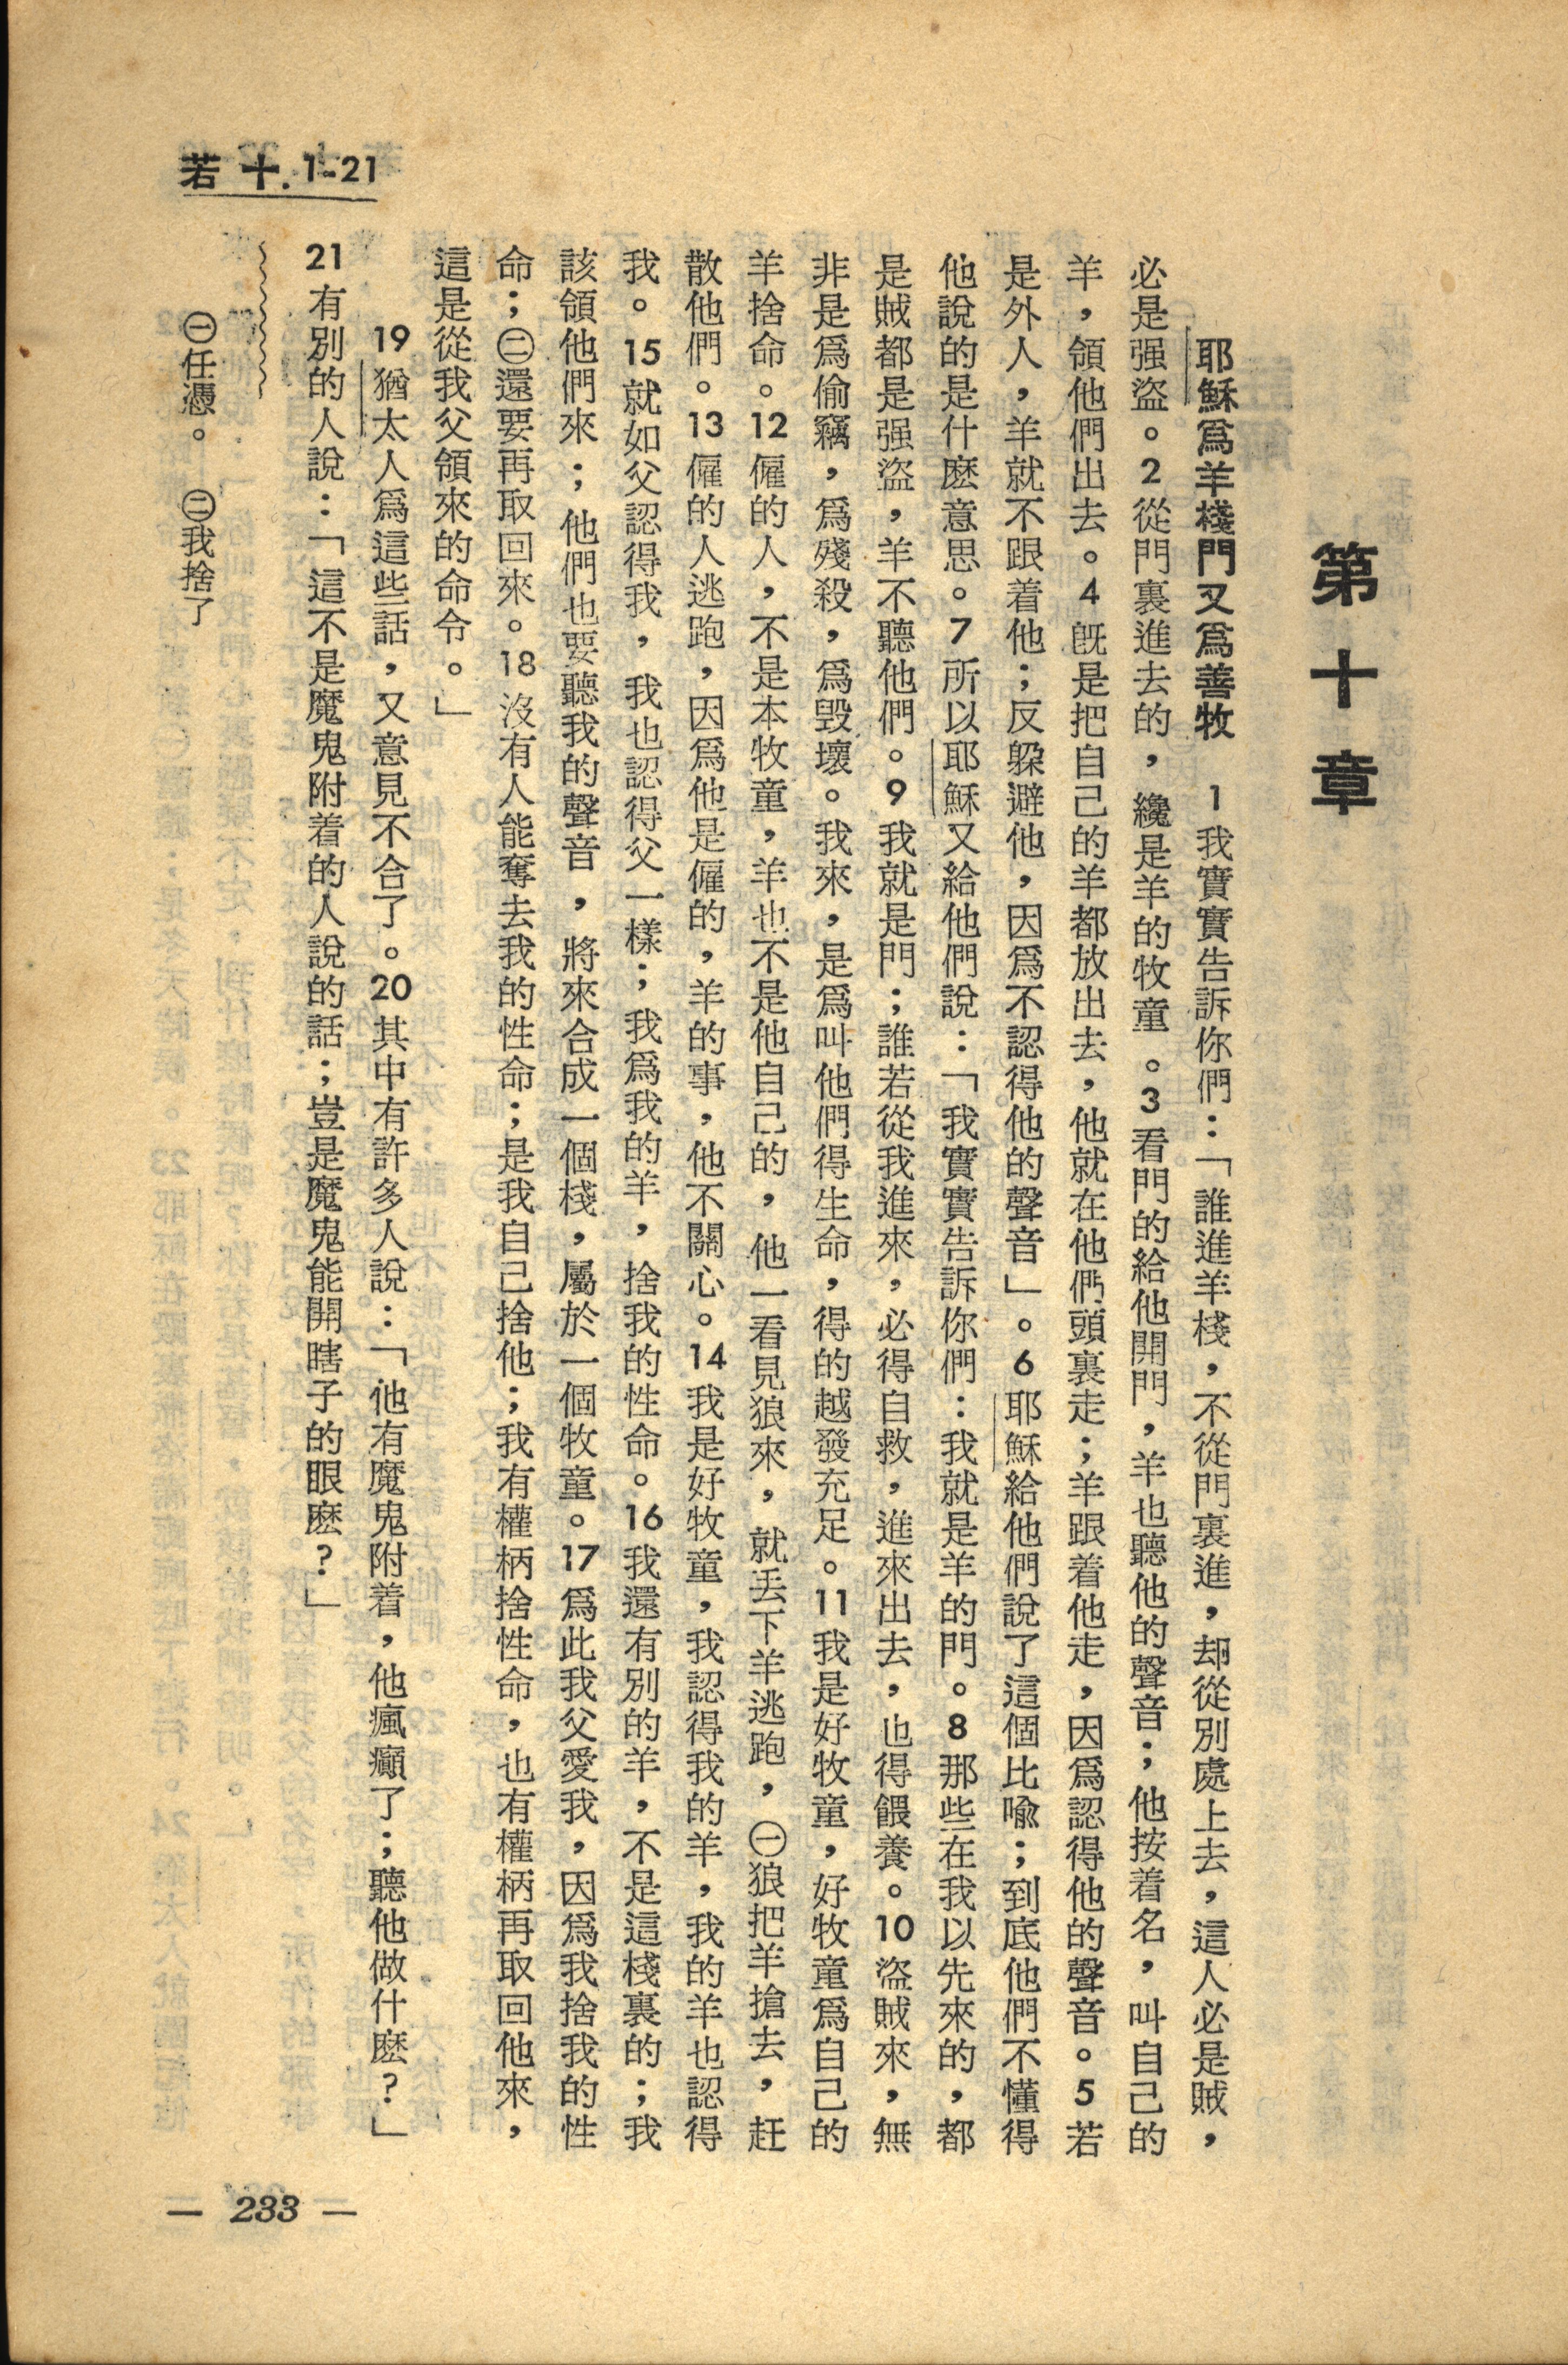 若十.1-21
第十章
耶穌爲羊棧門又爲善牧　1我實實告訴你們：「誰進羊棧，不從門裏進，却從別處上去，這人必是賊，
必是强盜。2從門裏進去的，纔是羊的牧童。3看門的給他開門，羊也聽他的聲音；他按着名，叫自己的
羊，領他們出去。4旣是把自己的羊都放出去，他就在他們頭裏走；羊跟着他走，因爲認得他的聲音。5若
是外人，羊就不跟着他；反躱避他，因爲不認得他的聲音」。6耶穌給他們說了這個比喩；到底他們不懂得
他說的是什麽意思。7所以耶穌又給他們說：「我實實告訴你們：我就是羊的門。8那些在我以先來的，都
是賊都是强盜，羊不聽他們。9我就是門；誰若從我進來，必得自救，進來出去，也得餵養。10盜賊來，無
非是爲偷竊，爲殘殺，爲毀壞。我來，是爲叫他們得生命，得的越發充足。11我是好牧童，好牧童爲自己的
羊捨命。12僱的人，不是本牧童，羊也不是他自己的，他一看見狼來，就丢下羊逃跑，㊀狼把羊搶去，赶
散他們。13僱的人逃跑，因爲他是僱的，羊的事，他不關心。14我是好牧童，我認得我的羊，我的羊也認得
我。15就如父認得我，我也認得父一樣；我爲我的羊，捨我的性命。16我還有別的羊，不是這棧裏的；我
該領他們來；他們也要聽我的聲音，將來合成一個棧，屬於一個牧童。17爲此我父愛我，因爲我捨我的性
命；㊁還要再取回來。18沒有人能奪去我的性命；是我自己捨他；我有權柄捨性命，也有權柄再取回他來，
這是從我父領來的命令。」
19猶太人爲這些話，又意見不合了。20其中有許多人說：「他有魔鬼附着，他瘋癲了；聽他做什麽？」
21有別的人說：「這不是魔鬼附着的人說的話；豈是魔鬼能開瞎子的眼麽？」
㊀任憑。　㊁我捨了
— 233 —